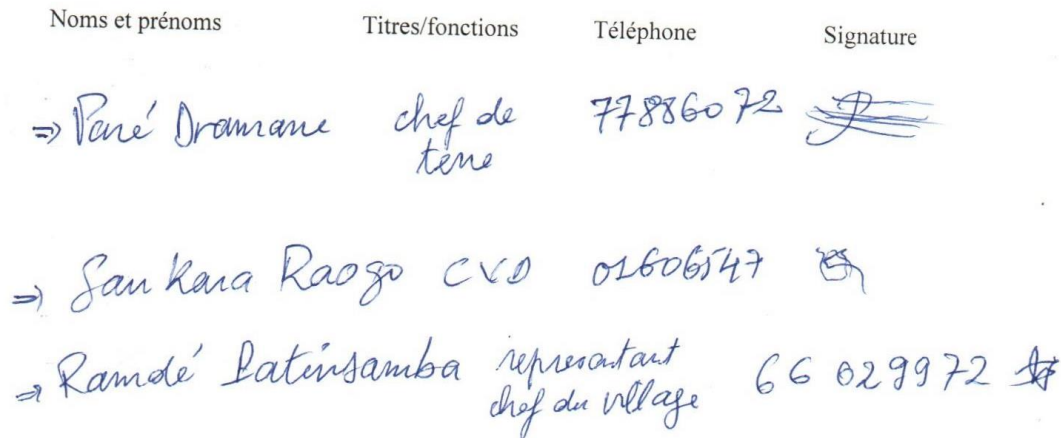 Noms et prénoms Titres/fonctions Téléphone Signature
=> Paré Dramane chef de 77886072
terre
=> Sankara Raogo CVD 01606547
=> Ramdé Patinsamba représentant 66029972
chef du village